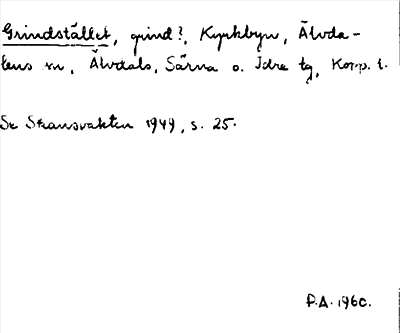 Grindstället, grind?, Kyrkbyn, Älvda-
lens sn, Älvdals, Särna o. Idre tg, Kopp. l.
Se Skansvakten 1949, s. 25.
P.A. 1960.